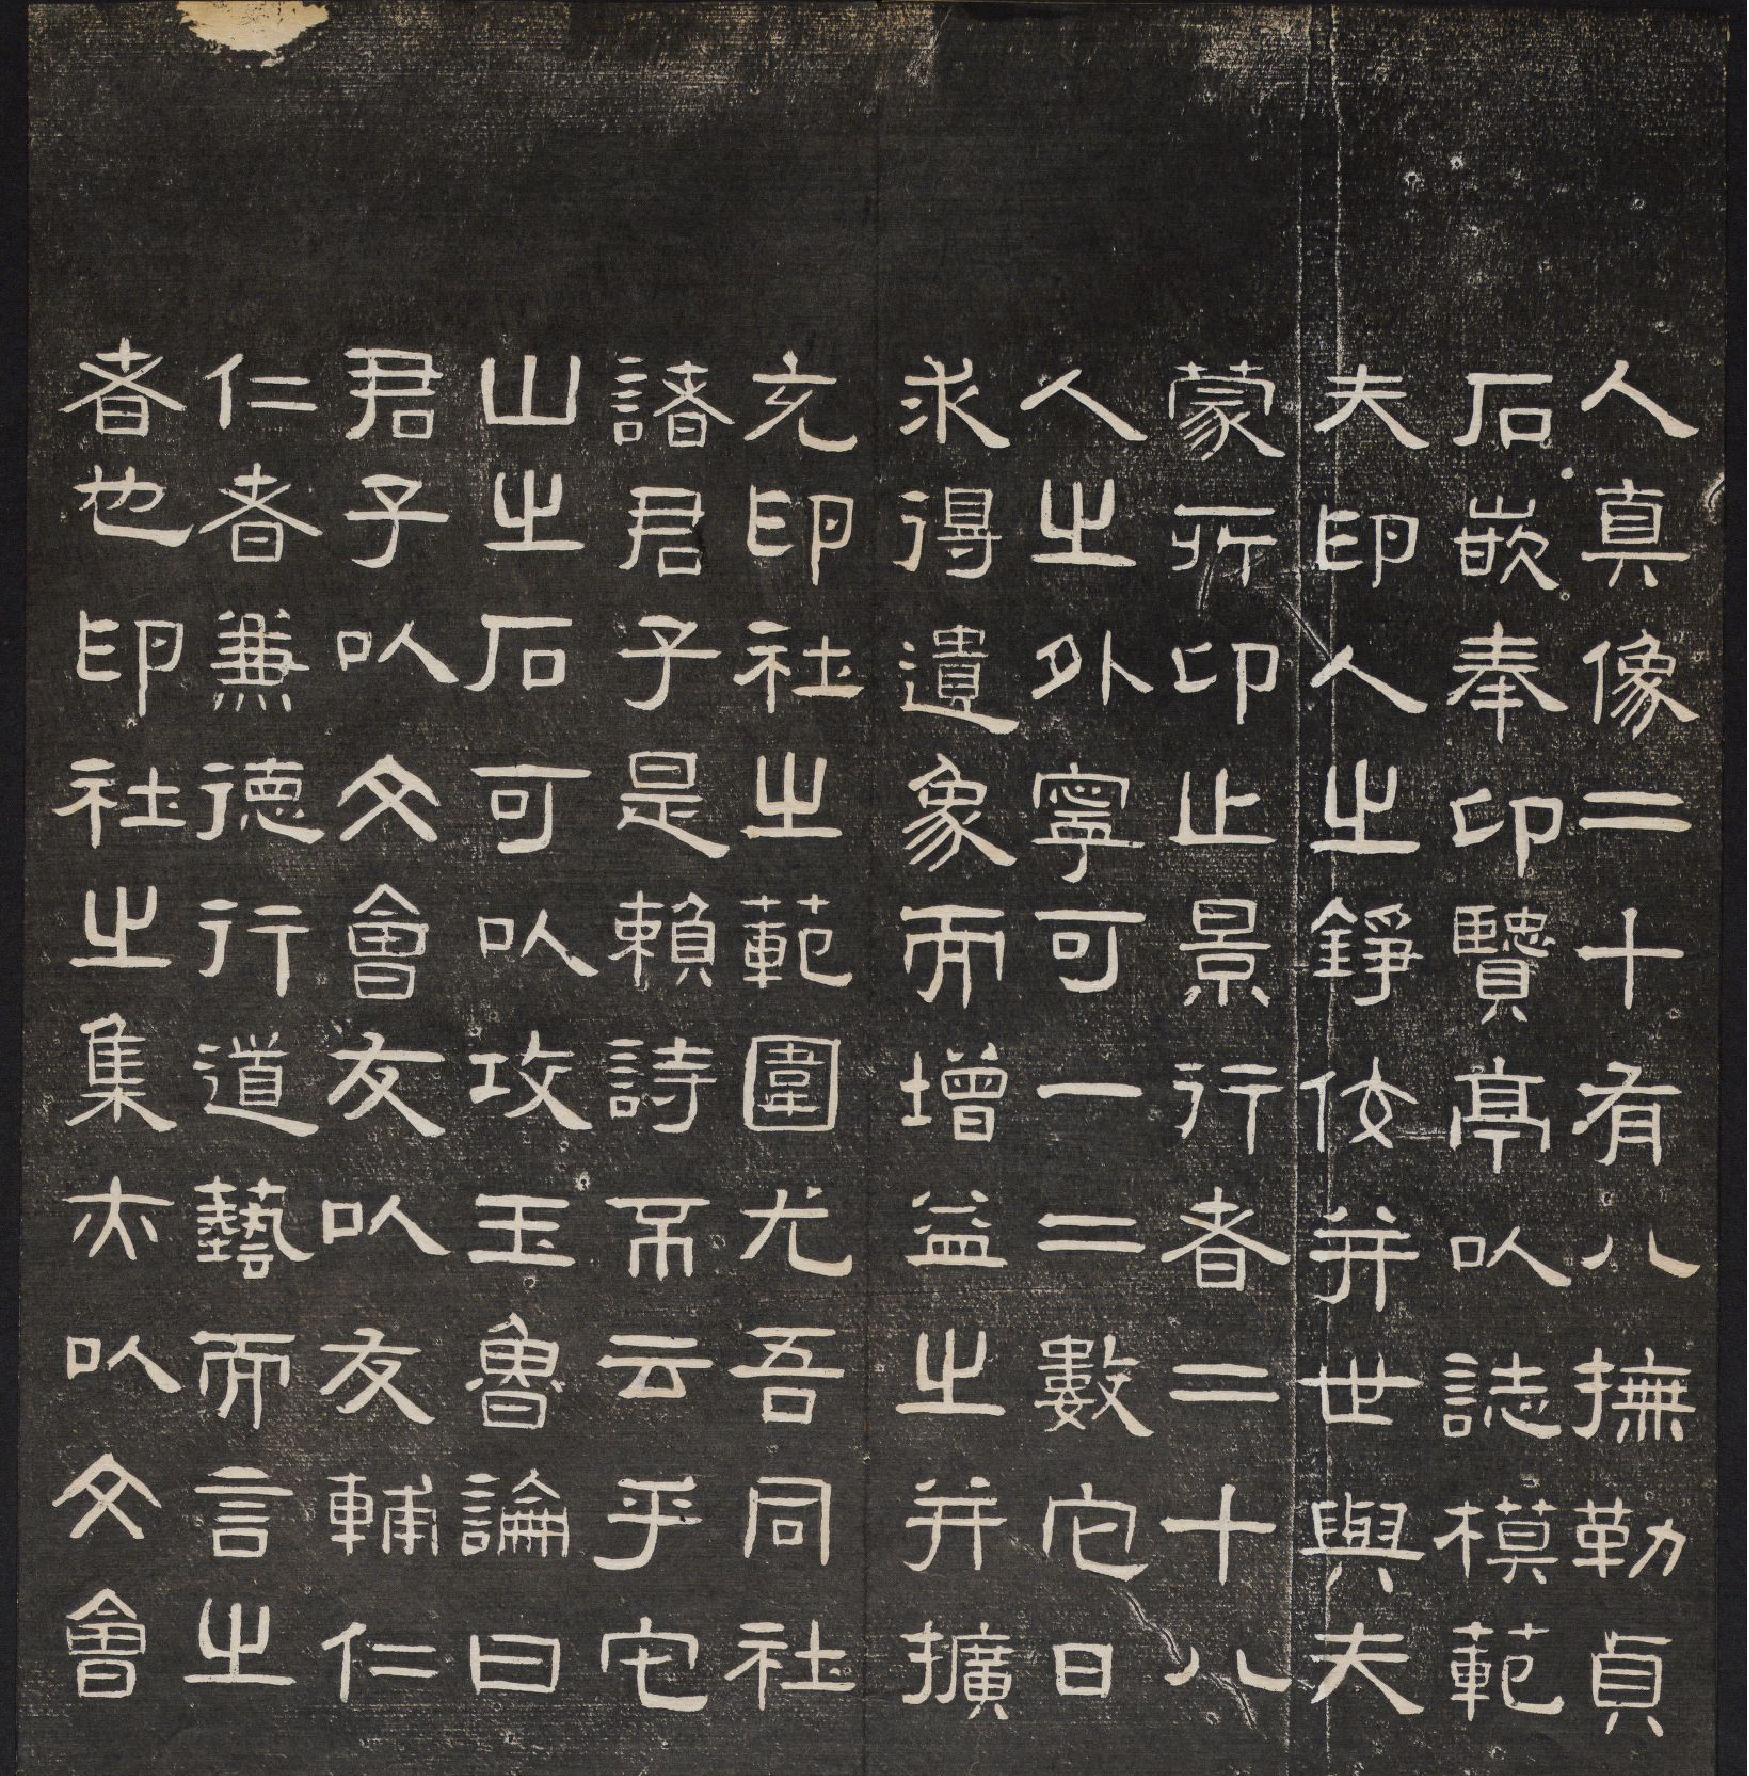 人真像二十有八撫勒貞
石嵌奉卬賢亭以誌模範
夫印人之錚佼并世與夫
蒙所卬止景行者二十八
人之外寧可一二數它日
求得遺象而增益之并擴
充印社之範圍尤吾同社
諸君子是賴詩不云乎它
山之石可以攻玉魯論曰
君子以文會友以友輔仁
仁者兼德行道藝而言之
者也印社之集亦以文會